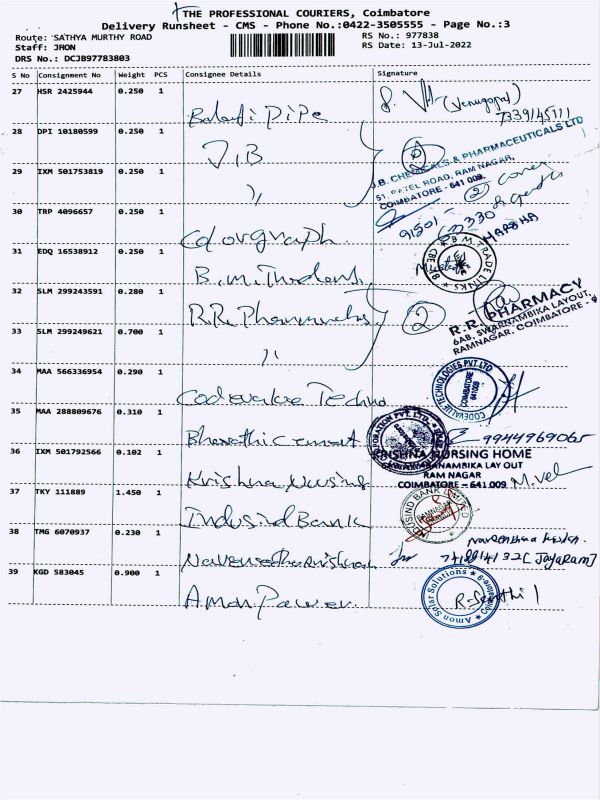 THE PROFESSIONAL COURIERS, Coimbatore
Delivery Runsheet - CMS - Phone No.:0422-3505555 - Page No.:3
Route: SATHYA MURTHY ROAD
RS No.: 977838
Staff: JHON
RS Date: 13-Jul-2022
DRS No.: DCJB97783803
S No Consignment No Weight PCS Consignee Details Signature
27 HSR 2425944 0.250 1
Balaji Pipe (Venugopal)
7339145111
28 DPI 10180599 0.250 1
J.B 2
J.B. CHEMICALS & PHARMACEUTICALS LTD
51, PATEL ROAD, RAM NAGAR,
COIMBATORE - 641 009.
29 IXM 501753819 0.250 1
" 2 cover
30 TRP 4096657 0.250 1
Colorgraph 91501-60330
HARSHA
31 EDQ 16538912 0.250 1
B.M. Traders
B.M. TRADE LINKS
CBE
32 SLM 299243591 0.280 1
R.R. Pharmacy 2
R.R. PHARMACY
6AB, SWARNAMBIKA LAYOUT,
RAMNAGAR, COIMBATORE - 9
33 SLM 299249621 0.700 1
"
34 MAA 566336954 0.290 1
Codevalue Techno
CODEVALUE TECHNOLOGIES PVT LTD
COIMBATORE
641009
35 MAA 288809676 0.310 1
Bharathi cement 9944969065
36 IXM 501792566 0.102 1
Krishna Nursing
KRISHNA NURSING HOME
SWARNAMBIKA LAY OUT
RAM NAGAR
COIMBATORE - 641 009
M.vel
37 TKY 111889 1.450 1
Indusind Bank
INDUSIND BANK LIMITED
38 TMG 6070937 0.230 1
Naveenethakrishnan
[Jayaram]
39 KGD 583045 0.900 1
Amon Power
Amon Solar Solutions
R. Senthil